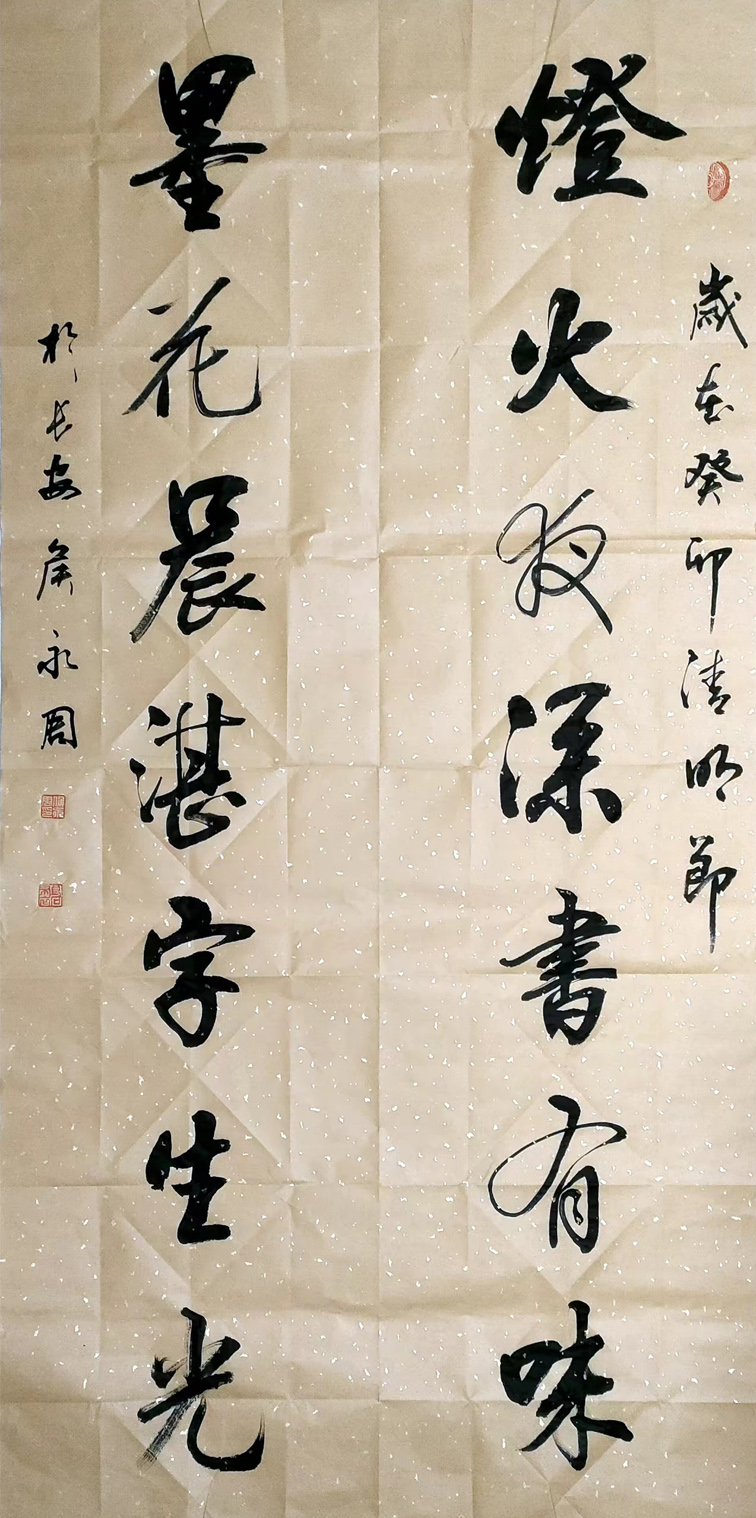 歲在癸卯清明節
燈火夜深書有味
墨花晨湛字生光
於長安 侯永周